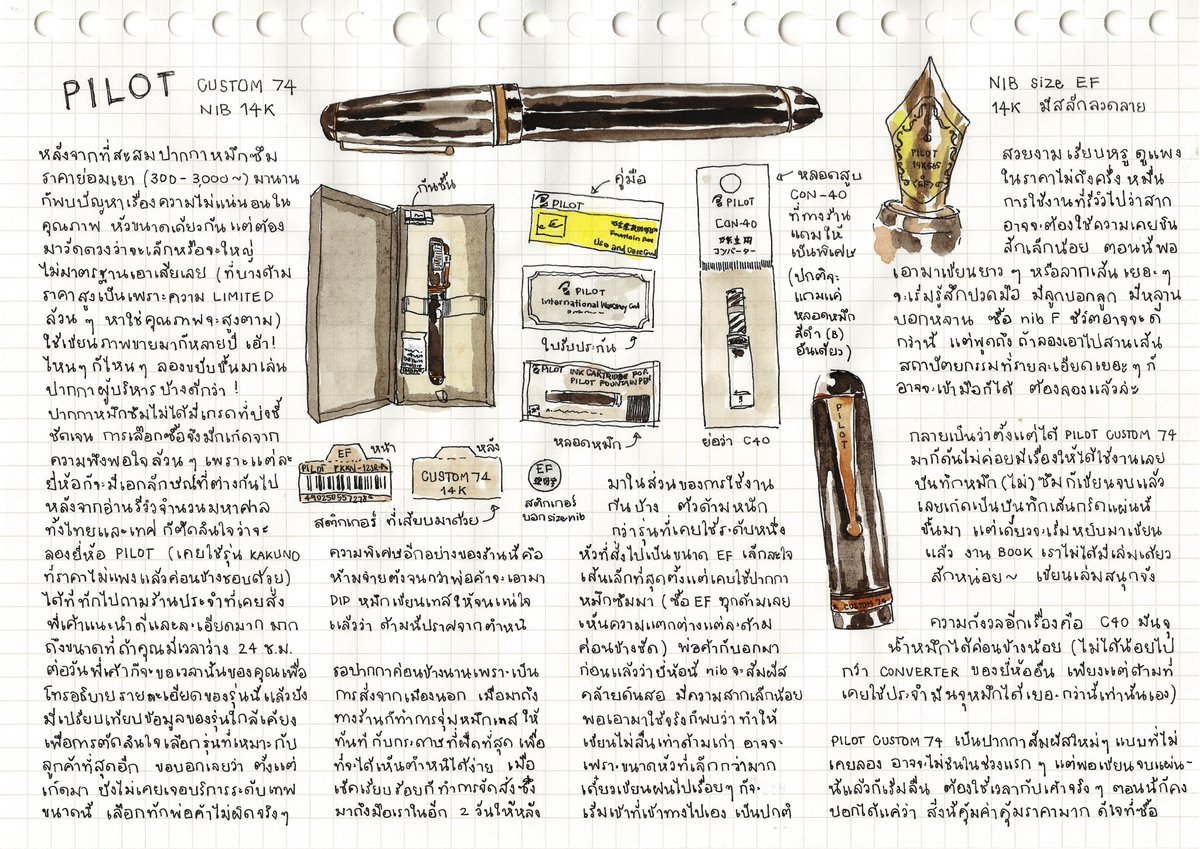 PILOT
CUSTOM 74
NIB 14K
หลังจากที่สะสมปากกาหมึกซึม
ราคาย่อมเยา (300 - 3,000 ~) มานาน
ก็พบปัญหาเรื่องความไม่แน่นอนใน
คุณภาพ หัวขนาดเดียวกัน แต่ต้อง
มาวัดดวงว่าจะเล็กหรือจะใหญ่
ไม่มาตรฐานเอาเสียเลย (ที่บางด้าม
ราคาสูงเป็นเพราะความ LIMITED
ล้วน ๆ หาใช่คุณภาพจะสูงตาม)
ใช้เขียนภาพขายมาก็หลายปี เฮ้า!
ไหนๆ ก็ไหน ๆ ลองขยับขึ้นมาเล่น
ปากกาผู้บริหารบ้างดีกว่า !
ปากกาหมึกซึมไม่ได้มีเกรดที่บ่งชี้
ชัดเจน การเลือกซื้อจึงมักเกิดจาก
ความพึงพอใจล้วน ๆ เพราะแต่ละ
ยี่ห้อก็จะมีเอกลักษณ์ที่ต่างกันไป
หลังจากอ่านรีวิวจำนวนมหาศาล
ทั้งไทยและเทศ ก็ตัดสินใจว่าจะ
ลองยี่ห้อ PILOT (เคยใช้รุ่น KAKUNO
ที่ราคาไม่แพงแล้วค่อนข้างชอบด้วย)
ได้ที่ทักไปถามร้านประจำที่เคยสั่ง
พี่เค้าแนะนำดีและละเอียดมาก มาก
ถึงขนาดที่ถ้าคุณมีเวลาว่าง 24 ช.ม.
ต่อวันพี่เค้าก็จะขอเวลานั้นของคุณเพื่อ
โทรอธิบายรายละเอียดของรุ่นนี้แล้วยัง
มีเปรียบเทียบข้อมูลของรุ่นใกล้เคียง
เพื่อการตัดสินใจเลือกรุ่นที่เหมาะกับ
ลูกค้าที่สุดอีก ขอบอกเลยว่า ตั้งแต่
เกิดมา ยังไม่เคยเจอบริการระดับเทพ
ขนาดนี้ เลือกทักพ่อค้าไม่ผิดจริงๆ
กันชื้น
คู่มือ
PILOT
Fountain Pen
Use and Care Guide
PILOT
International Warranty Card
ใบรับประกัน
PILOT INK CARTRIDGE FOR
PILOT FOUNTAIN PEN
หลอดหมึก
PILOT
CON-40
コンバーター
ย่อว่า C40
หลอดสูบ
CON-40
ที่ทางร้าน
แถมให้
เป็นพิเศษ
(ปกติจะ
แถมแค่
หลอดหมึก
สีดำ (B)
อันเดียว)
EF
หน้า
PILOT FKKN-12SR-
CUSTOM 74
14K
หลัง
สติกเกอร์ ที่เสียบมาด้วย
EF
สติกเกอร์
บอก size nib
ความพิเศษอีกอย่างของร้านนี้คือ
ห้ามจ่ายตังจนกว่าพ่อค้าจะเอามา
DIP หมึกเขียนเทสให้จนแน่ใจ
แล้วว่า ด้ามนี้ปราศจากตำหนิ
รอปากกาค่อนข้างนานเพราะเป็น
การสั่งจากเมืองนอก เมื่อมาถึง
ทางร้านก็ทำการจุ่มหมึกเทส ให้
ทันที กับกระดาษที่ฝืดที่สุด เพื่อ
ที่จะได้เห็นตำหนิได้ง่าย เมื่อ
เช็คเรียบร้อยก็ทำการจัดส่ง ซึ่ง
มาถึงมือเราในอีก 2 วันให้หลัง
มาในส่วนของการใช้งาน
กันบ้าง ตัวด้ามหนัก
กว่ารุ่นที่เคยใช้ระดับหนึ่ง
หัวที่สั่งไปเป็นขนาด EF เล็กสะใจ
เส้นเล็กที่สุดตั้งแต่เคยใช้ปากกา
หมึกซึมมา (ซื้อ EF ทุกด้ามเลย
เห็นความแตกต่างแต่ละด้าม
ค่อนข้างชัด) พ่อค้าก็บอกมา
ก่อนแล้วว่ายี่ห้อนี้ nib จะสัมผัส
คล้ายดินสอ มีความสากเล็กน้อย
พอเอามาใช้จริงก็พบว่า ทำให้
เขียนไม่ลื่นเท่าด้ามเก่า อาจจะ
เพราะขนาดหัวที่เล็กกว่ามาก
เดี๋ยวเขียนฝนไปเรื่อยๆ ก็จะ
เริ่มเข้าที่เข้าทางไปเอง เป็นปกติ
PILOT
14K 585
EF
NIB size EF
14K มีสลักลวดลาย
สวยงาม เรียบหรู ดูแพง
ในราคาไม่ถึงครึ่งหมื่น
การใช้งานที่รีวิวไปว่าสาก
อาจจะต้องใช้ความเคยชิน
สักเล็กน้อย ตอนนี้พอ
เอามาเขียนยาว ๆ หรือลากเส้น เยอะ ๆ
จะเริ่มรู้สึกปวดมือ มีลูกบอกลูก มีหลาน
บอกหลาน ซื้อ nib F ชีวิตอาจจะดี
กว่านี้ แต่พูดถึง ถ้าลองเอาไปสานเส้น
สถาปัตยกรรมที่รายละเอียดเยอะๆ ก็
อาจจะเข้ามือก็ได้ ต้องลองแล้วล่ะ
PILOT
CUSTOM 74
กลายเป็นว่าตั้งแต่ได้ PILOT CUSTOM 74
มาก็ดันไม่ค่อยมีเรื่องให้ได้ใช้งานเลย
บันทึกหมึก (ไม่) ซึมก็เขียนจบแล้ว
เลยเกิดเป็นบันทึกเส้นกริดแผ่นนี้
ขึ้นมา แต่เดี๋ยวจะเริ่มหยิบมาเขียน
แล้ว งาน BOOK เราไม่ได้มีเล่มเดียว
สักหน่อย ~ เขียนเล่มสนุกจัง
ความกังวลอีกเรื่องคือ C40 มันจุ
น้ำหมึกได้ค่อนข้างน้อย (ไม่ได้น้อยไป
กว่า CONVERTER ของยี่ห้ออื่น เพียงแต่ด้ามที่
เคยใช้ประจำมันจุหมึกได้เยอะกว่านี้เท่านั้นเอง)
PILOT CUSTOM 74 เป็นปากกาสัมผัสใหม่ๆ แบบที่ไม่
เคยลอง อาจจะไม่ชินในช่วงแรก ๆ แต่พอเขียนจบแผ่น-
นี้แล้วก็เริ่มลื่น ต้องใช้เวลากับเค้าจริง ๆ ตอนนี้ก็คง
บอกได้แค่ว่า สิ่งนี้คุ้มค่าคุ้มราคามาก ดีใจที่ซื้อ